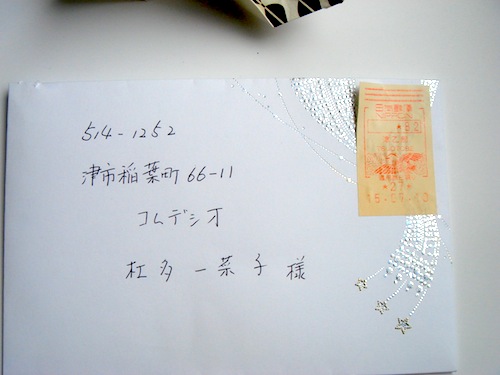 514-1252
津市稲葉町66-11
コムデシオ
杠多一菜子様
日本郵便